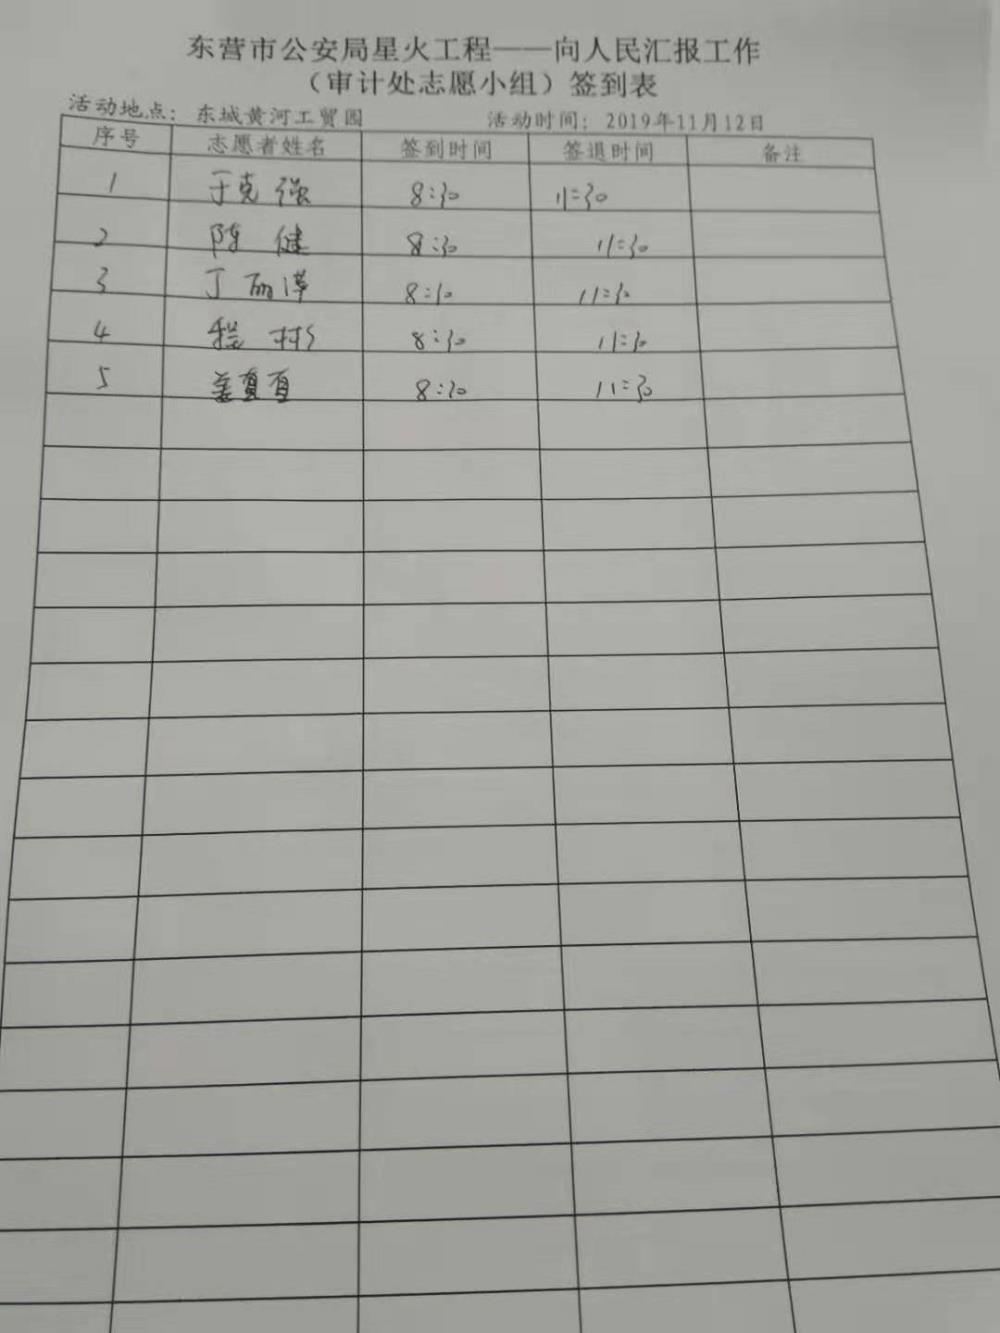 东营市公安局星火工程——向人民汇报工作
（审计处志愿小组）签到表
活动地点：东城黄河工贸园 活动时间：2019年11月12日
序号 志愿者姓名 签到时间 签退时间 备注
1 于克强 8:30 11:30
2 陈健 8:30 11:30
3 丁丽萍 8:30 11:30
4 程彬 8:30 11:30
5 姜夏夏 8:30 11:30